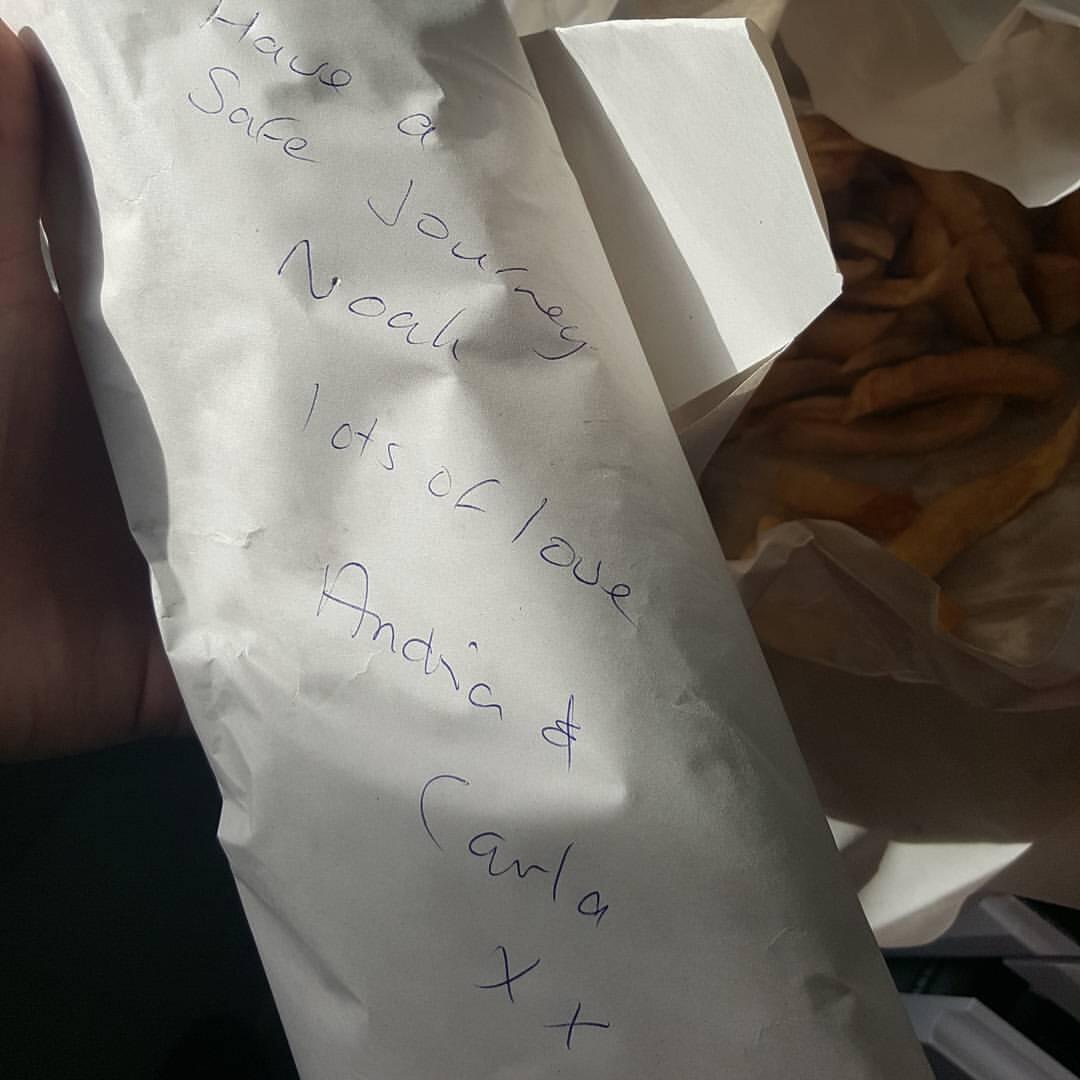 Have a
Safe Journey
Noah
lots of love
Andria &
Carla
x x